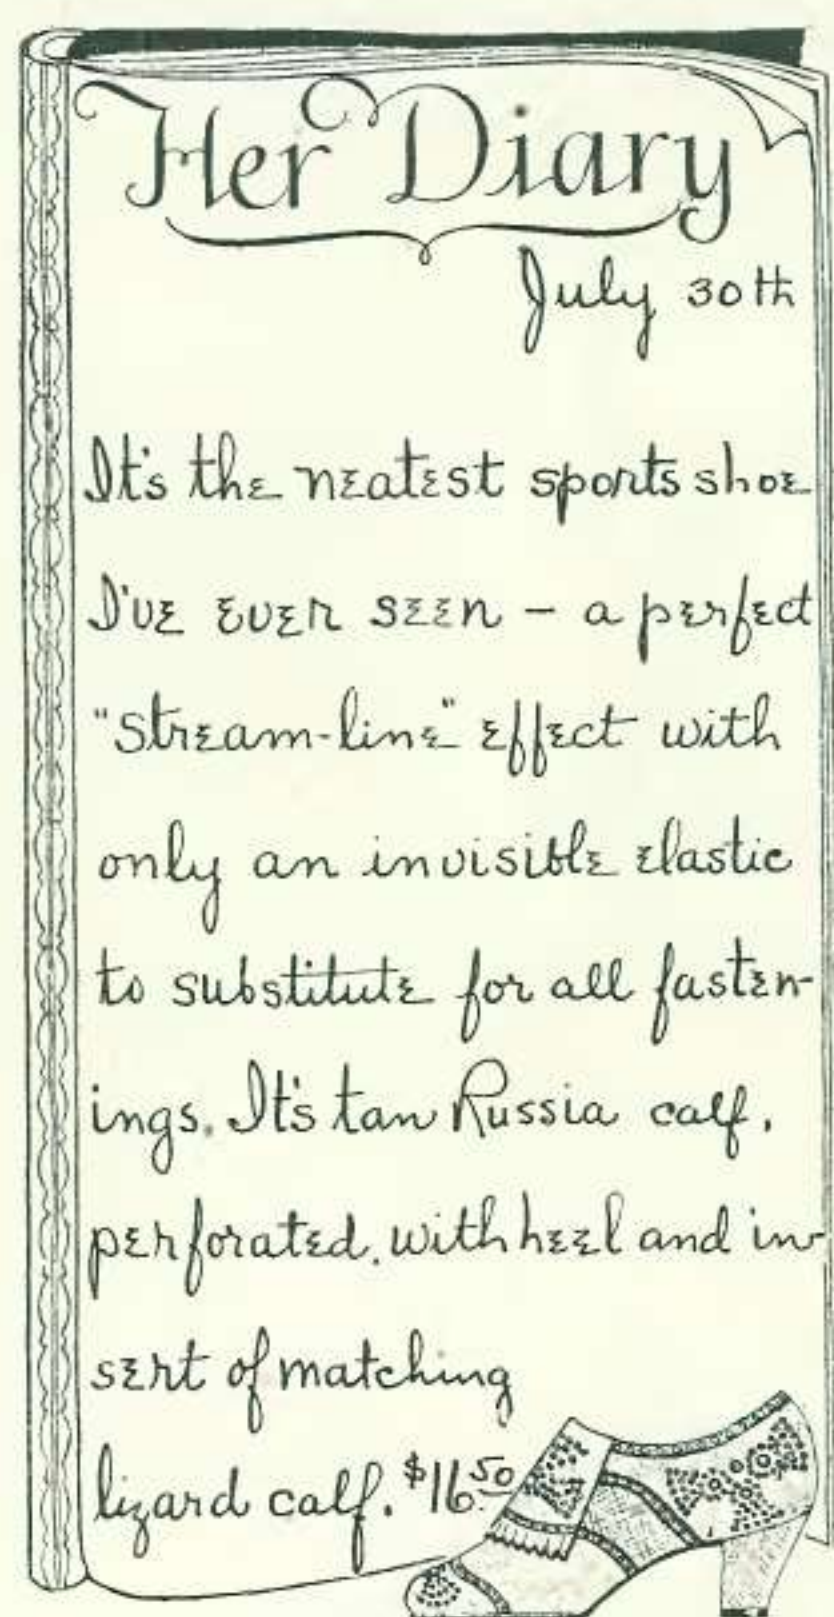 Her Diary
July 30th
It's the neatest sports shoe
I've ever seen – a perfect
"stream-line" effect with
only an invisible elastic
to substitute for all fasten-
ings. It's tan Russia calf,
perforated, with heel and in-
sert of matching
lizard calf. $16.50